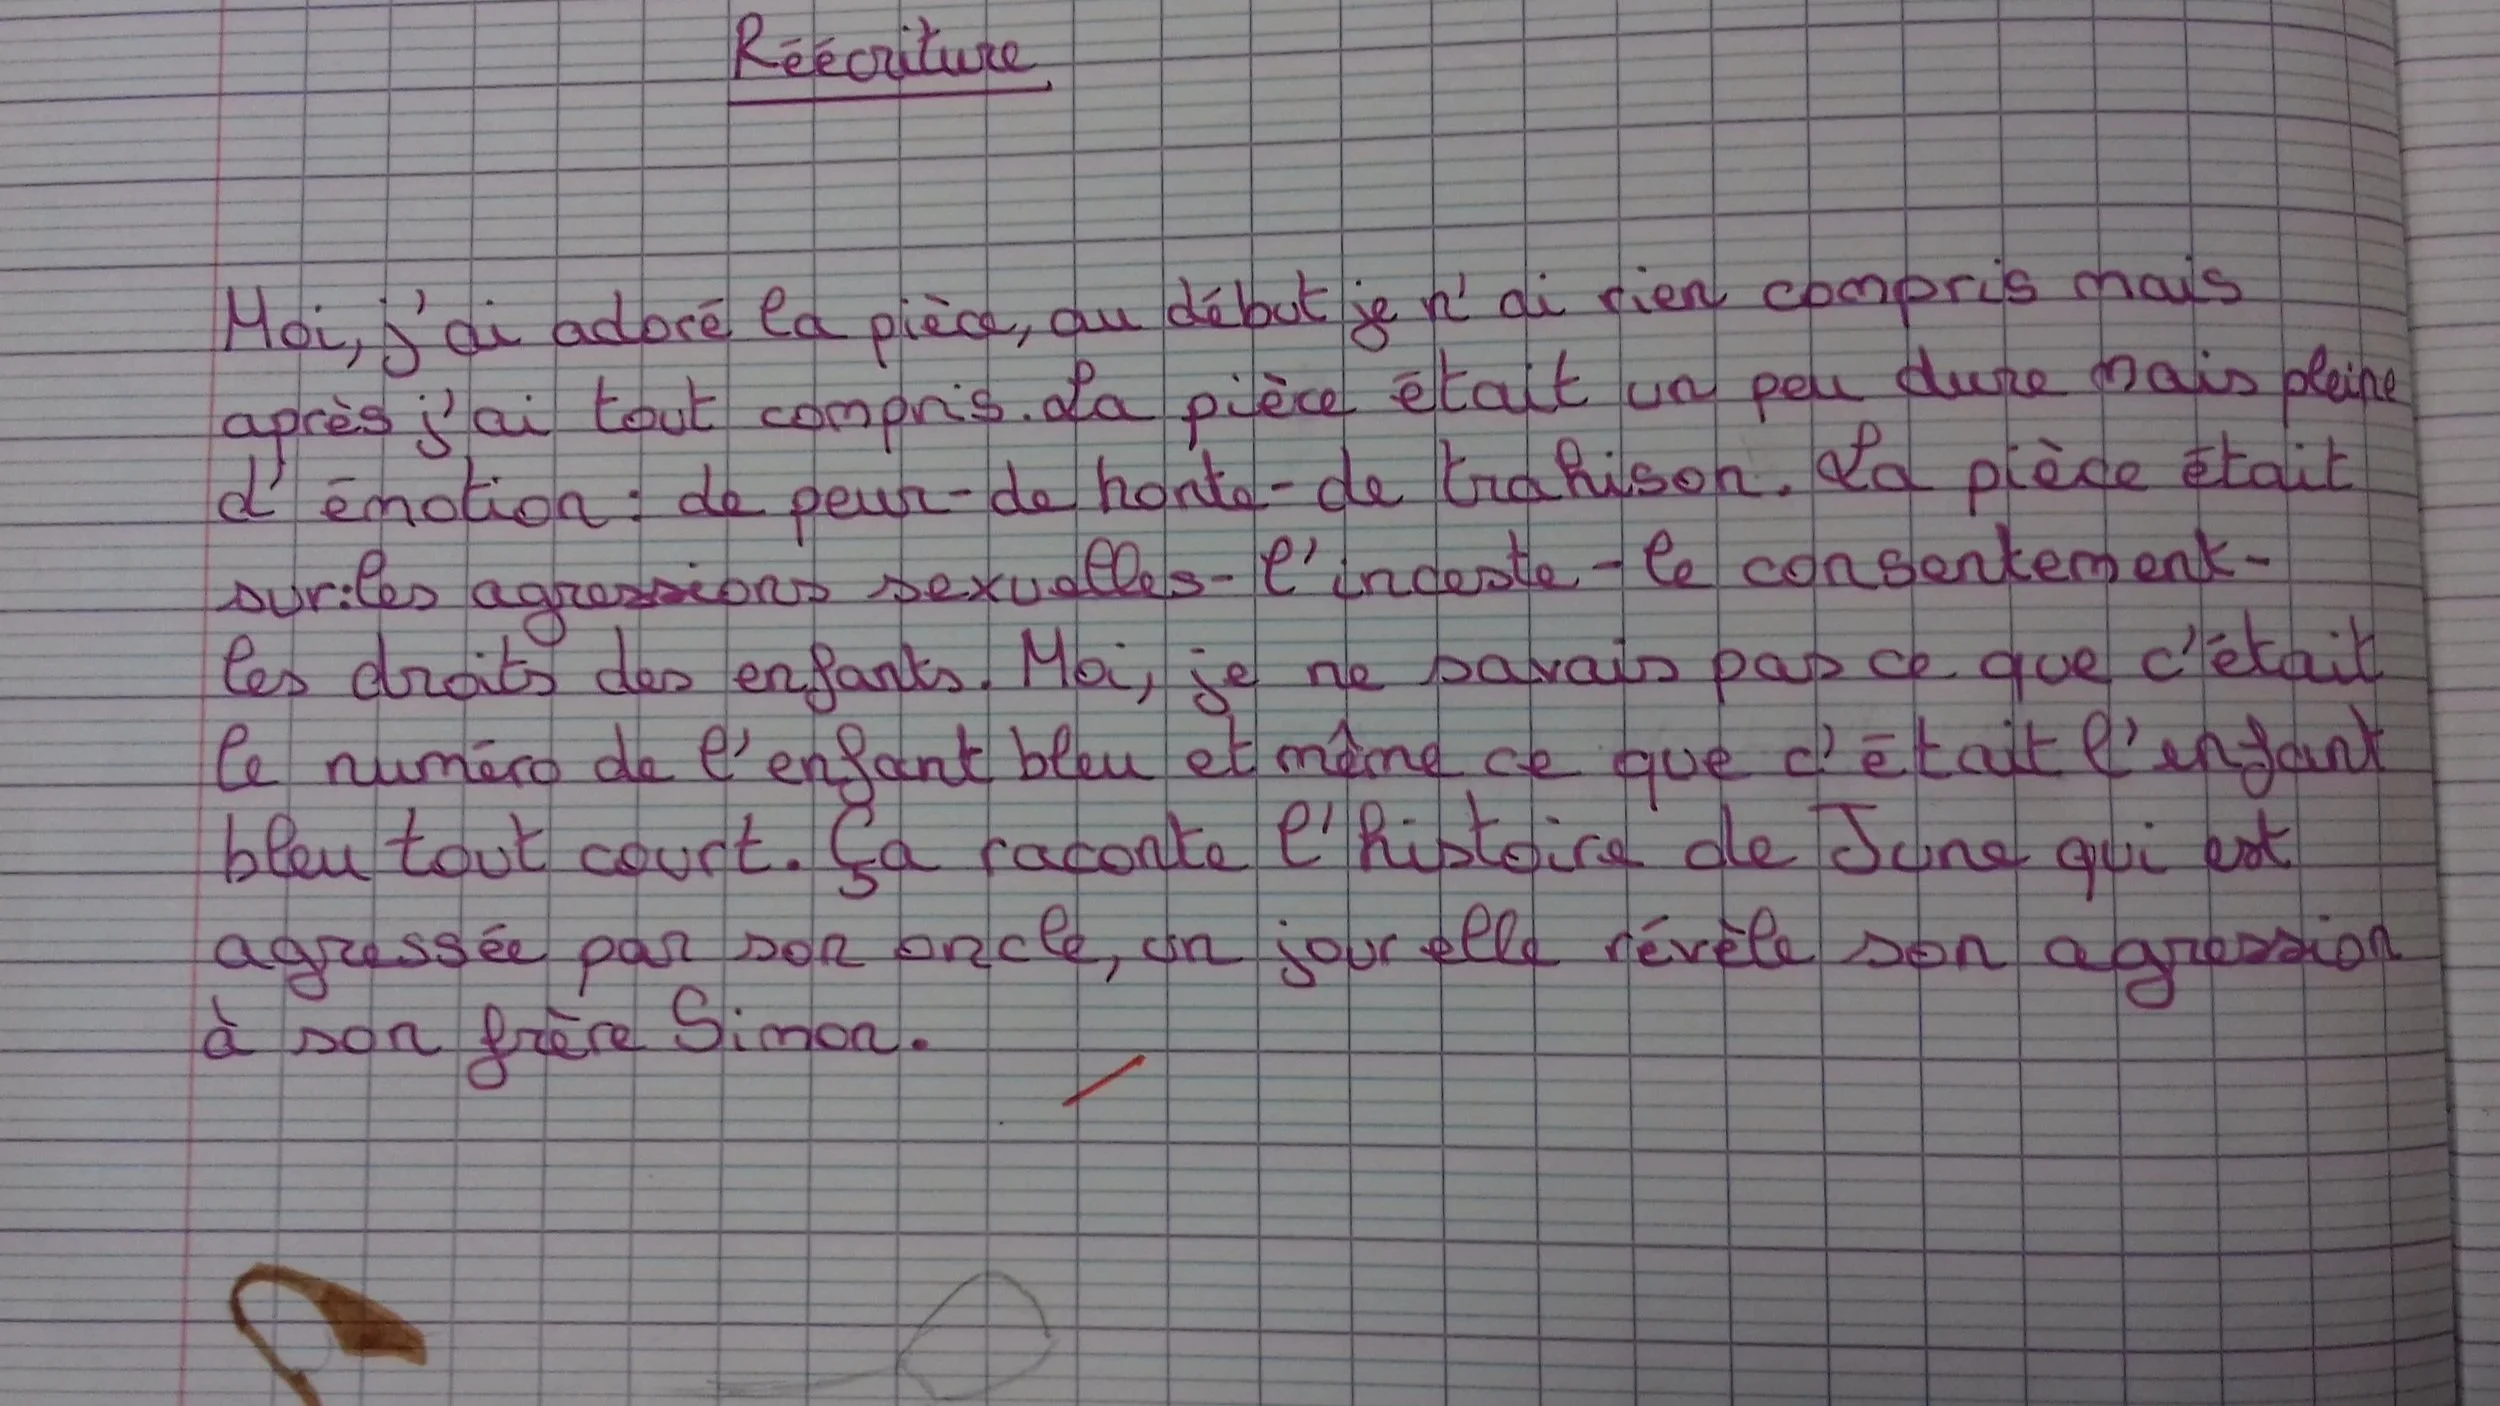 Réécriture
Moi, j'ai adoré la pièce, au début je n'ai rien compris mais
après j'ai tout compris. La pièce était un peu dure mais pleine
d'émotion : de peur - de honte - de trahison. La pièce était
sur : les agressions sexuelles - l'inceste - le consentement -
les droits des enfants. Moi, je ne savais pas ce que c'était
le numéro de l'enfant bleu et même ce que c'était l'enfant
bleu tout court. Ça raconte l'histoire de June qui est
agressée par son oncle, un jour elle révèle son agression
à son frère Simon.